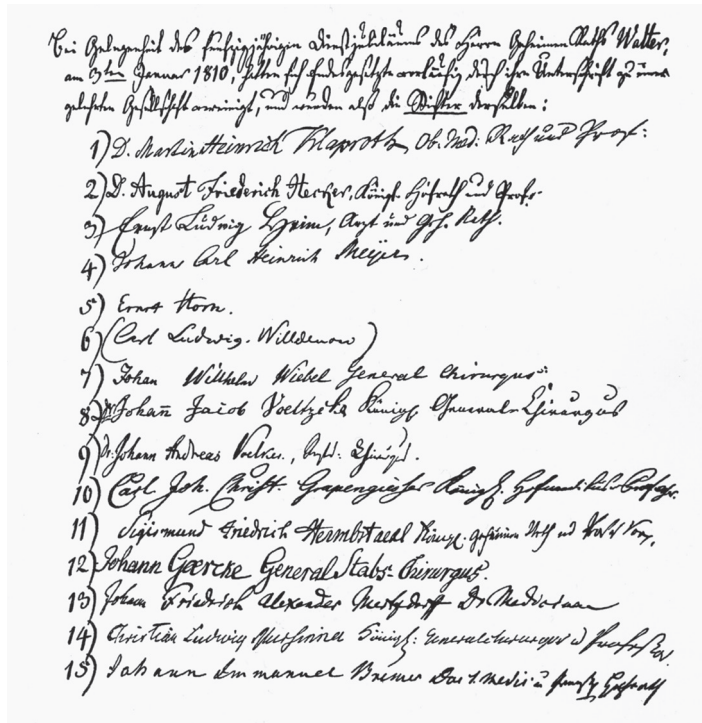 Bei Gelegenheit des funfzigjährigen Dienstjubiläums des Herrn Geheimen Raths Walter,
am 3ten Januar 1810, hatten sich Endesgesetzte vorläufig durch ihre Unterschrift zu einer
gelehrten Gesellschaft vereinigt, und wurden also die Stifter derselben:
1) D. Martin Heinrich Klaproth, Ob. Med: Rath und Prof:
2) D. August Friederich Hecker, Königl. Hofrath und Profs.
3) Ernst Ludwig Heim, Arzt und Geh. Rath.
4) Johann Carl Heinrich Meyer.
5) Ernst Horn.
6) (Carl Ludwig Willdenow)
7) Johan Willhelm Wiebel General Chirurgus
8) Johann Jacob Voeltzcke Königl. General-Chirurgus
9) Dr. Johann Andreas Voelker, Chirurg.
10) Carl Joh. Christ. Grapengiesser Königl. Hofmedikus
11) Sigismund Friedrich Hermbstaedt Königl. Geheimer Rath und
12) Johann Goercke General Stabs-Chirurgus.
13) Johann Friedrich Alexander Mertzdorff Dr Medicinae
14) Christian Ludwig Mursinna Königl: Generalchirurgus u Professor.
15) Johann Immanuel Bremer Doct. Medic: u Hofrath